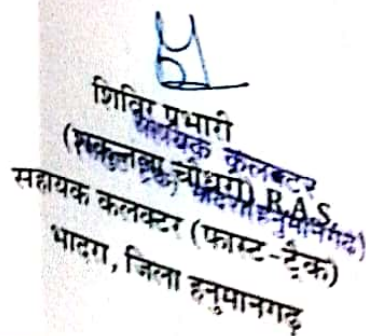 शिविर प्रभारी
सहायक कलक्टर
(शकुन्तला चौधरी) R.A.S.
सहायक कलक्टर (फास्ट-ट्रैक)
भादरा, जिला हनुमानगढ़